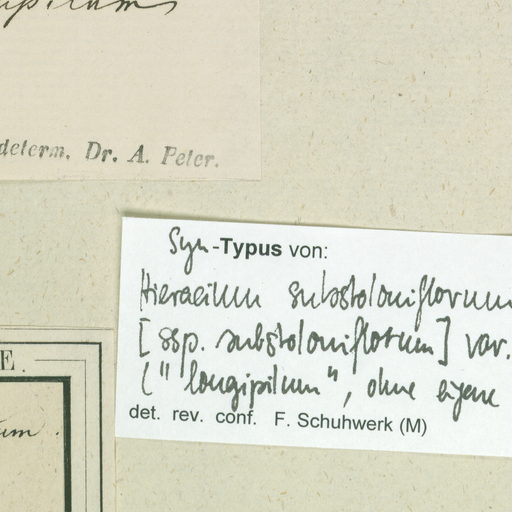 determ. Dr. A. Peter.
Syn-Typus von:
Hieracium substoloniflorum
[ssp. substoloniflorum] var.
("longipilum", ohne eigene
det. rev. conf. F. Schuhwerk (M)
E.